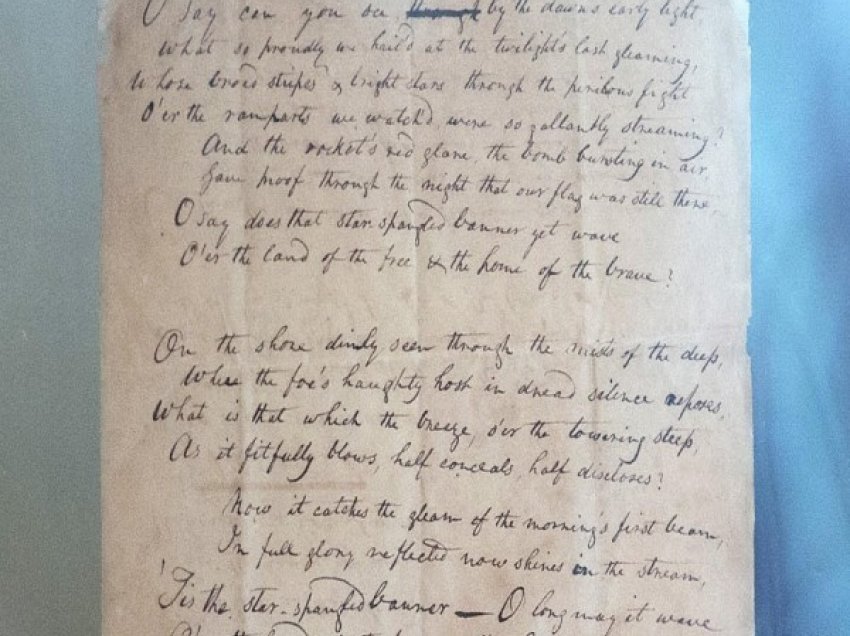 O say can you see, through by the dawn's early light,
What so proudly we hail'd at the twilight's last gleaming,
Whose broad stripes & bright stars through the perilous fight
O'er the ramparts we watch'd, were so gallantly streaming?
And the rocket's red glare, the bomb bursting in air,
Gave proof through the night that our flag was still there,
O say does that star-spangled banner yet wave
O'er the land of the free & the home of the brave?
On the shore dimly seen through the mists of the deep,
Where the foe's haughty host in dread silence reposes,
What is that which the breeze, o'er the towering steep,
As it fitfully blows, half conceals, half discloses?
Now it catches the gleam of the morning's first beam,
In full glory reflected now shines in the stream,
'Tis the star-spangled banner — O long may it wave
O'er the land